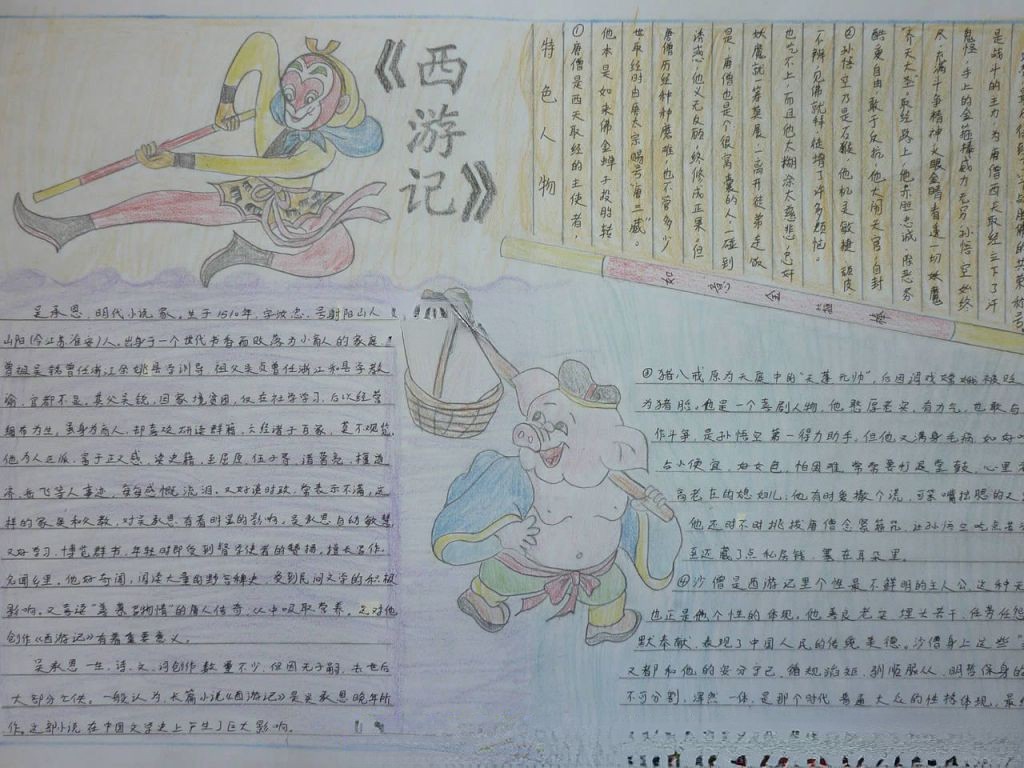 《西游记》
特色人物
①唐僧是西天取经的主使者，
他本是如来佛金蝉子投胎转
世取经时由唐太宗赐号“唐三藏”。
唐僧历经种种磨难，也不管多少
诱惑，他义无反顾，终修成正果，但
是，唐僧也是个很窝囊的人，一碰到
妖魔就一筹莫展，一离开徒弟连饭
也吃不上，而且他太糊涂太慈悲，总奸
不辨见佛就拜，徒增了许多烦恼。
②孙悟空乃是石猴，他机灵敏捷，顽皮
酷爱自由，敢于反抗，他大闹天宫，自封
齐天大圣，取经路上，他赤胆忠诚，除恶务
尽，充满斗争精神，火眼金睛看透一切妖魔
鬼怪，手上的金箍棒威力无穷，孙悟空始终
是战斗的主力，为唐僧西天取经立下了汗
如意金箍棒
吴承恩，明代小说家。生于1510年，字汝忠，号射阳山人
山阳(今江苏淮安)人。出身于一个世代书香而败落为小商人的家庭
曾祖吴铭曾任浙江余姚县学训导，祖父吴贞曾任浙江和县学教
谕，官都不足。其父吴锐，因家境贫困，仅在社学学习，后以经营
绸布为生，虽身为商人，却喜欢研读群籍，六经诸子百家，莫不观览，
他为人正派，富于正义感，读史籍，至屈原、伍子胥、诸葛亮、檀道
济、岳飞等人事迹，每每感慨流泪。又好谈时政，常表示不满，这
样的家庭和父教，对吴承恩有着明显的影响，吴承恩自幼敏慧
又好学习，博览群书，年轻时即受到督学使者的赞扬，擅长写作，
名闻乡里。他好奇闻，阅读大量的野言稗史，受到民间文学的积极
影响。又喜读“善摹写物情”的唐人传奇，从中吸取营养。这对他
创作《西游记》有着重要意义。
吴承恩一生，诗、文、词创作数量不少，但因无子嗣，去世后
大部分亡佚。一般认为，长篇小说《西游记》是吴承恩晚年所
作。这部小说在中国文学史上产生了巨大影响。
③猪八戒原为天庭中的“天蓬元帅”，后因调戏嫦娥被贬
为猪胎。也是一个喜剧人物，他憨厚老实，有力气，也敢与
作斗争，是孙悟空第一得力助手，但他又满身毛病，如好吃
占小便宜，好女色，怕困难，常常要打退堂鼓，心里
高老庄的媳妇儿；他有时爱撒个谎，可笨嘴拙腮的又
他还时不时挑拨唐僧念紧箍咒，让孙悟空吃点苦
至还藏了点私房钱，塞在耳朵里。
④沙僧是西游记里个性最不鲜明的主人公，这种
也正是他个性的体现，他善良老实，埋头苦干，任劳任怨
默奉献，表现了中国人民的传统美德。沙僧身上这些
又都和他的安分守己，循规蹈矩，驯顺服从，明哲保身的
不可分割，浑然一体，是那个时代普通大众的性格体现，最